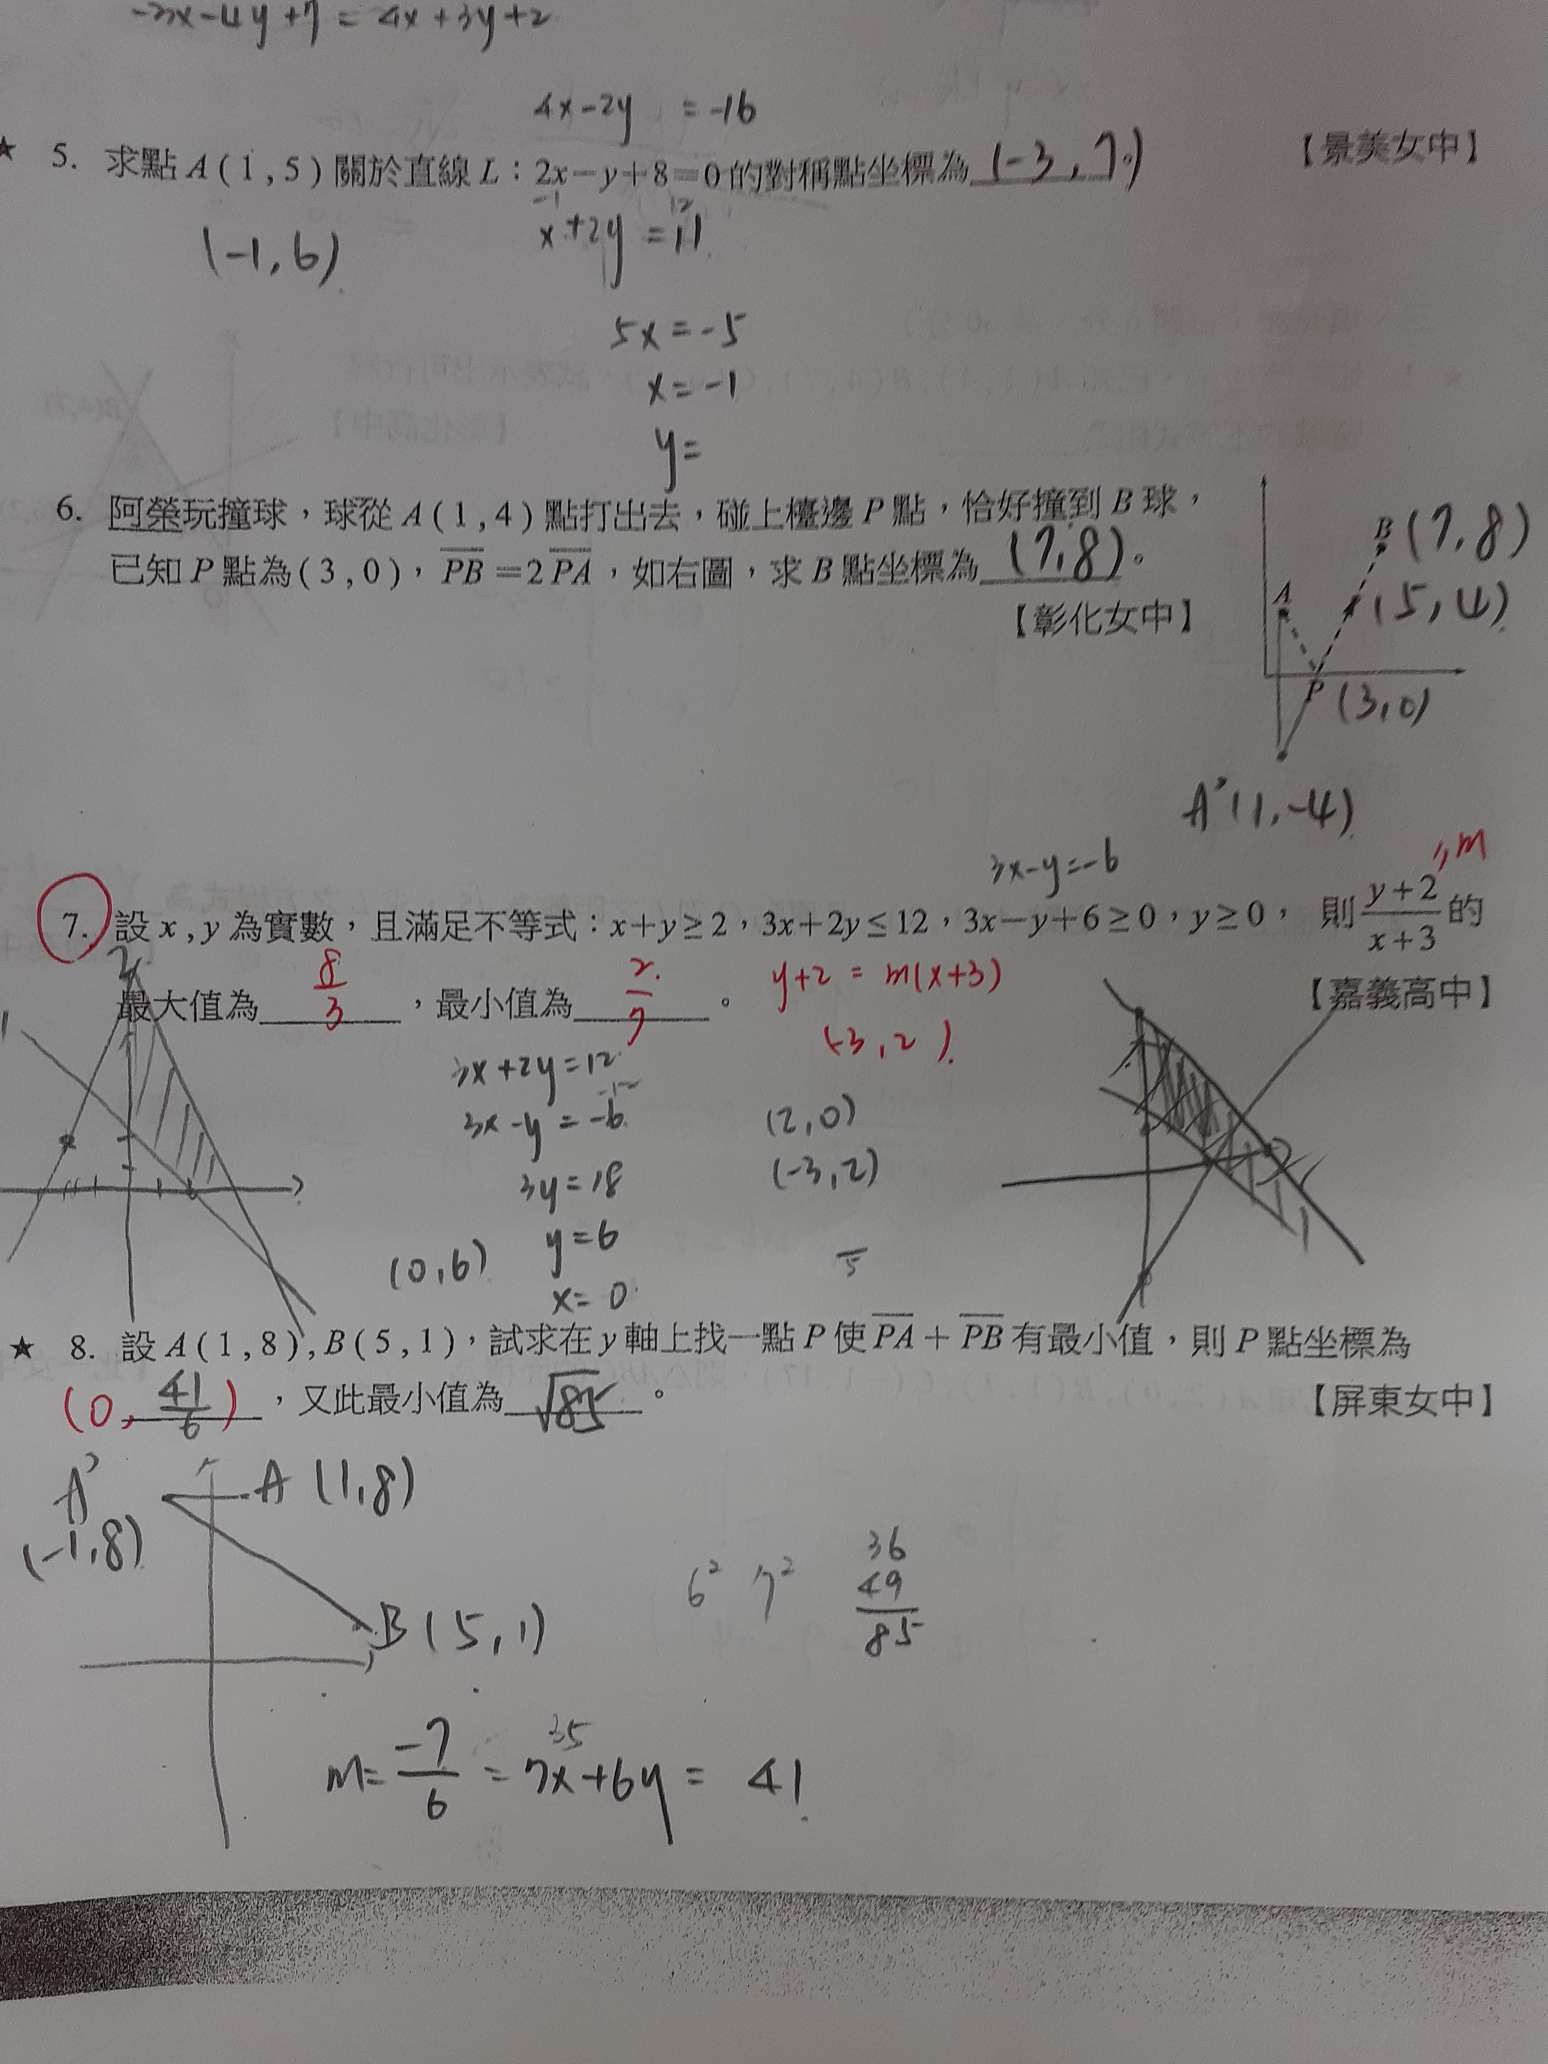 -3x-4y+7=4x+3y+2
4x-2y =-16
★ 5. 求點A(1,5)關於直線L：2x-y+8=0的對稱點坐標為(-3,7)。
【景美女中】
-1 12
x+2y=11
(-1,6)
5x=-5
x=-1
y=
6. 阿榮玩撞球，球從A(1,4)點打出去，碰上檯邊P點，恰好撞到B球，
已知P點為(3,0)，PB=2PA，如右圖，求B點坐標為(7,8)。
【彰化女中】
B (7,8)
A (5,4)
P (3,0)
A'(1,-4)
3x-y=-6
m
7. 設x,y為實數，且滿足不等式：x+y≥2，3x+2y≤12，3x-y+6≥0，y≥0，則(y+2)/(x+3)的
最大值為 8/3，最小值為 2/7。
【嘉義高中】
y+2=m(x+3)
(-3,2)
3x+2y=12
-12
3x-y=-6
(2,0)
3y=18
(-3,2)
y=6
(0,6)
5
x=0
★ 8. 設A(1,8),B(5,1)，試求在y軸上找一點P使PA+PB有最小值，則P點坐標為
(0,41/6)，又此最小值為√85。
【屏東女中】
A' A (1,8)
(-1,8)
36
6² 7² 49
85
B(5,1)
35
m=-7/6=7x+6y=41